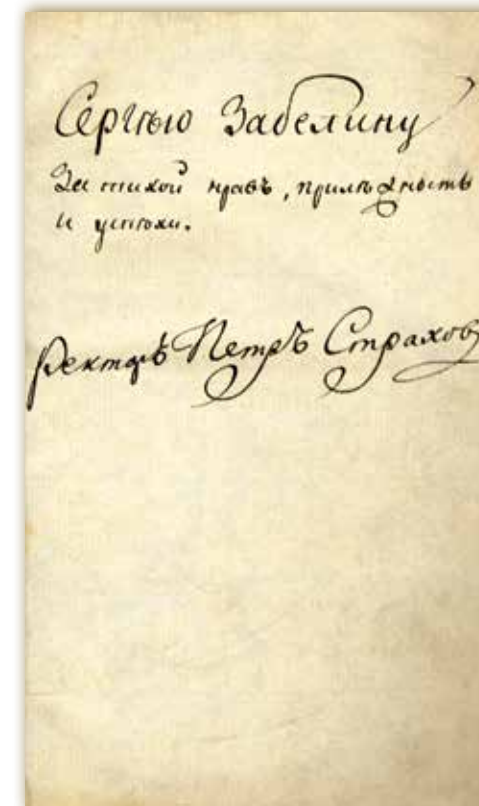 Сергѣю Забелину
За тихой нравъ, прилѣжность
и успѣхи.
Ректоръ Петръ Страхов